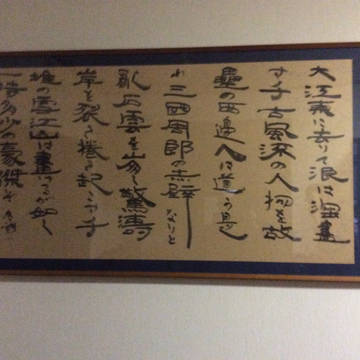 大江東に去りて浪は淘盡
す千古風流の人物を故
壘の西邊人は道う是
れ三國周郎の赤壁なりと
乱石雲を崩し驚濤
岸を裂き捲き起こす千
堆の雪江山は畫けるが如く
一時多少の豪傑ぞ